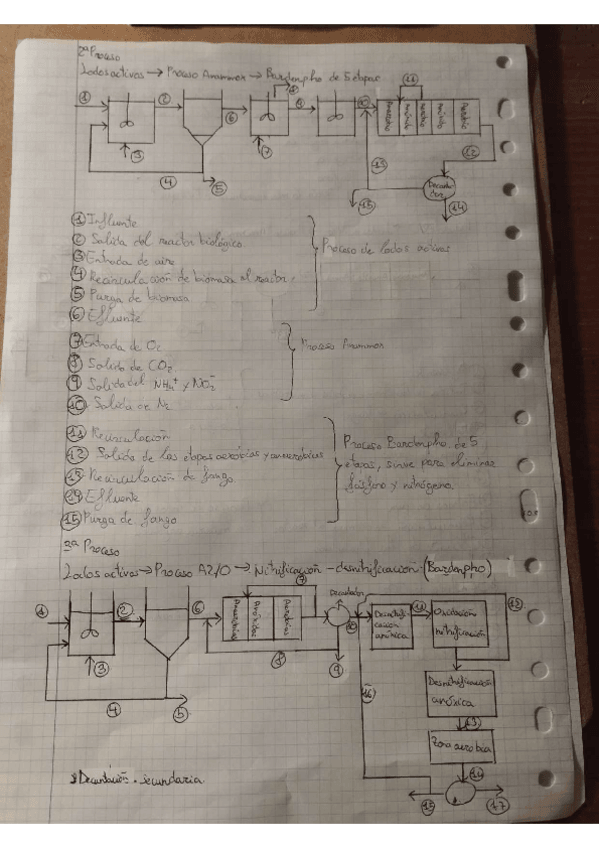 2ª Proceso
Lodos activos → Proceso Anammox → Bardenpho de 5 etapas
1 2 3 4 5 6 7 8 9 10 11 12 13 14 15
Decantador
① Influente
② Salida del reactor biológico
③ Entrada de aire
④ Recirculación de biomasa al reactor
⑤ Purga de biomasa
⑥ Efluente
Proceso de lodos activos
⑦ Entrada de O₂
⑧ Salida de CO₂
⑨ Salida del NH₄⁺ y NO₂⁻
⑩ Salida en N₂
Proceso Anammox
⑪ Recirculación
⑫ Salida de las etapas aerobias y anaerobias
⑬ Recirculación de fango
⑭ Efluente
⑮ Purga de fango
Proceso Bardenpho de 5
etapas, sirve para eliminar
fósforo y nitrógeno
3ª Proceso
Lodos activos → Proceso A2/O → Nitrificación - desnitrificación (Bardenpho)
1 2 3 4 5 6 7 8 9
Anaerobios
Anóxidos
Aerobios
Decantador
Desnitrificación anóxica
Oxidación nitrificación
Desnitrificación
anóxica
Zona aerobia
13 14 15 16 17
Decantación secundaria